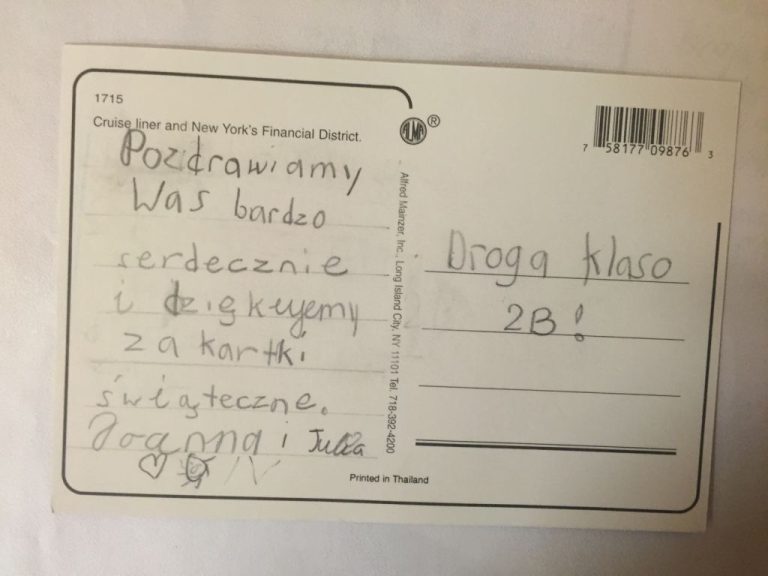 1715
Cruise liner and New York's Financial District.
Pozdrawiamy
Was bardzo
serdecznie
i dziękujemy
za kartki
świąteczne.
Joanna i Julia
ALMA®
Alfred Mainzer, Inc., Long Island City, NY 11101 Tel. 718-392-4200
7 58177 09876 3
Droga klaso
2B!
Printed in Thailand